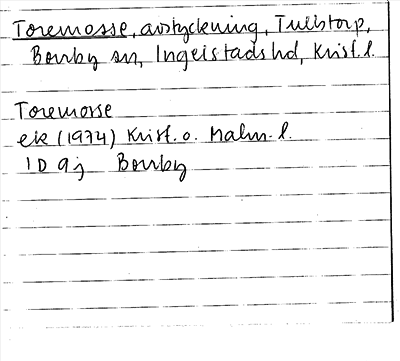 Toremosse, avstyckning, Tullstorp,
Borrby sn, Ingelstads hd, Krist. l.
Toremosse
ek (1974) Krist. o. Malm. l.
1D 9j Borrby